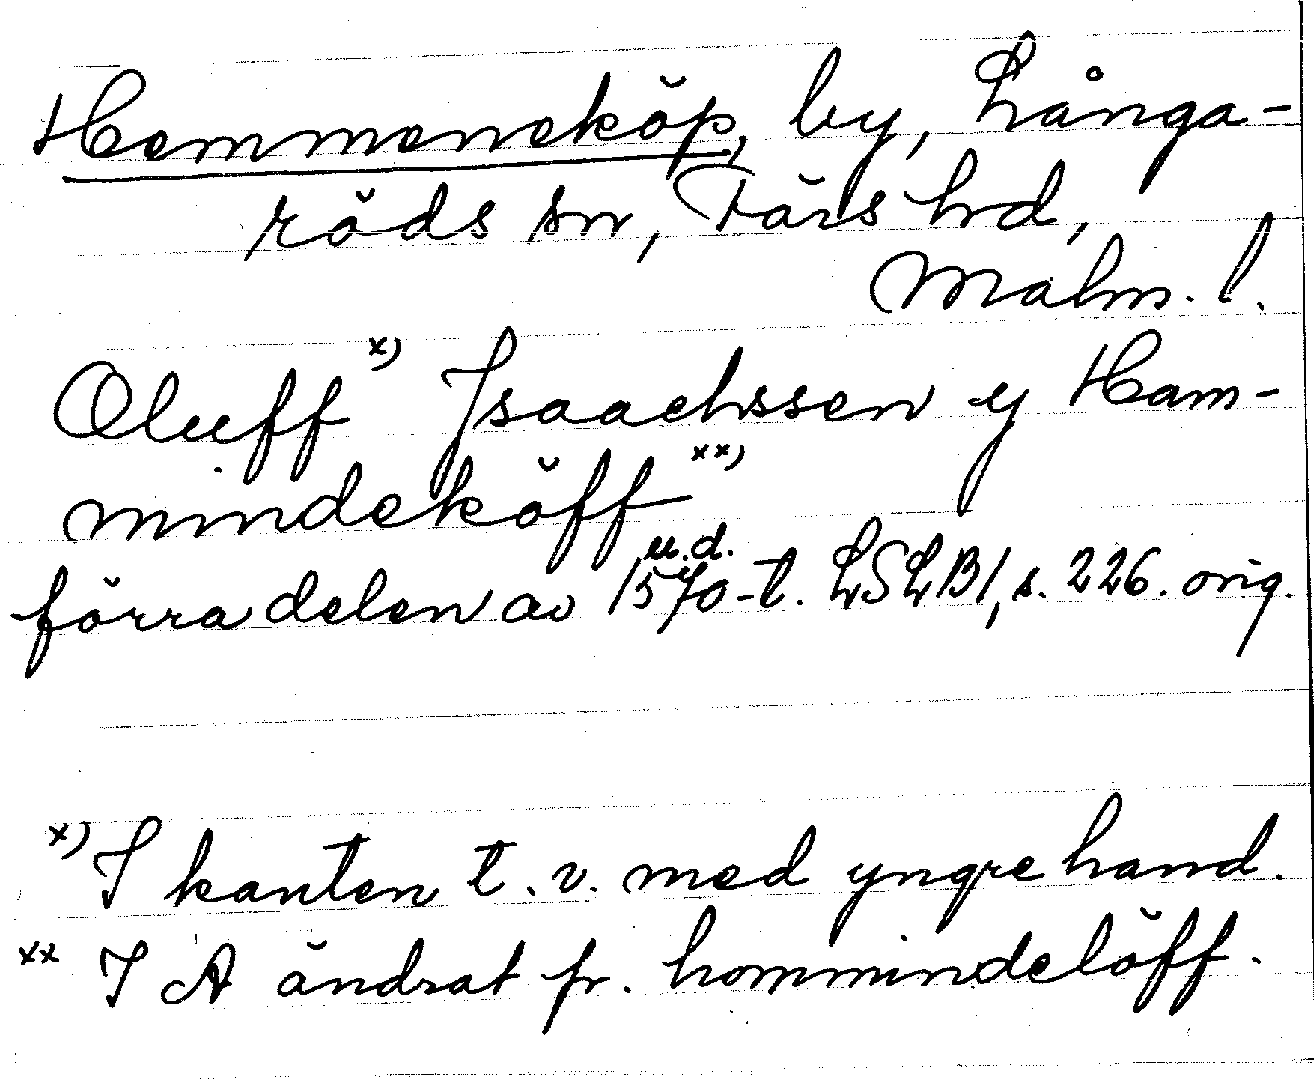 Hemmeneköp, by, Långa-
röds sn, Färs hrd,
Malm. l.
Oluff x) Isaachssen y Ham-
mindeköff xx)
u.d.
förra delen av 1570-t. LSLB1, s. 226. orig.
x) I kanten t.v. med yngre hand.
xx I A ändrat fr. hommindelöff.